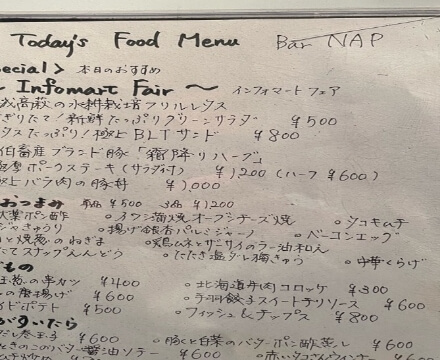 Today's Food Menu Bar NAP
pecial> 本日のおすすめ
Infomart Fair ～ インフォマートフェア
高萩の水耕栽培フリルレタス
ぎりたて!新鮮たっぷりグリーンサラダ ¥500
タスたっぷり!極上BLTサンド ¥800
伯畜産ブランド豚「霜降りハーブ」
ポークステーキ(サラダ付) ¥1,200 (ハーフ ¥600)
バラ肉の豚丼 ¥1,000
おつまみ ¥500 3種 ¥1200
ポン酢 ○イワシ薄焼オーブンチーズ焼 ○タコキムチ
きゅうり ○揚げ銀杏パルミジャーノ ○ベーコンエッグ
と焼葱のねぎま ○鶏ムネとザーサイのラー油和え
たてスナップえんどう ○たたき塩ダレ梅きゅう ○中華くらげ
もの
玉葱の串カツ ¥400 ○北海道牛肉コロッケ ¥300
の唐揚げ ¥600 ○手羽餃子スイートチリソース ¥600
イドポテト ¥500 ○フィッシュ&チップス ¥800
だし巻玉子 ¥600 ○豚と白菜のバターポン酢蒸し ¥600
きのこのバター醤油ソテー ¥600